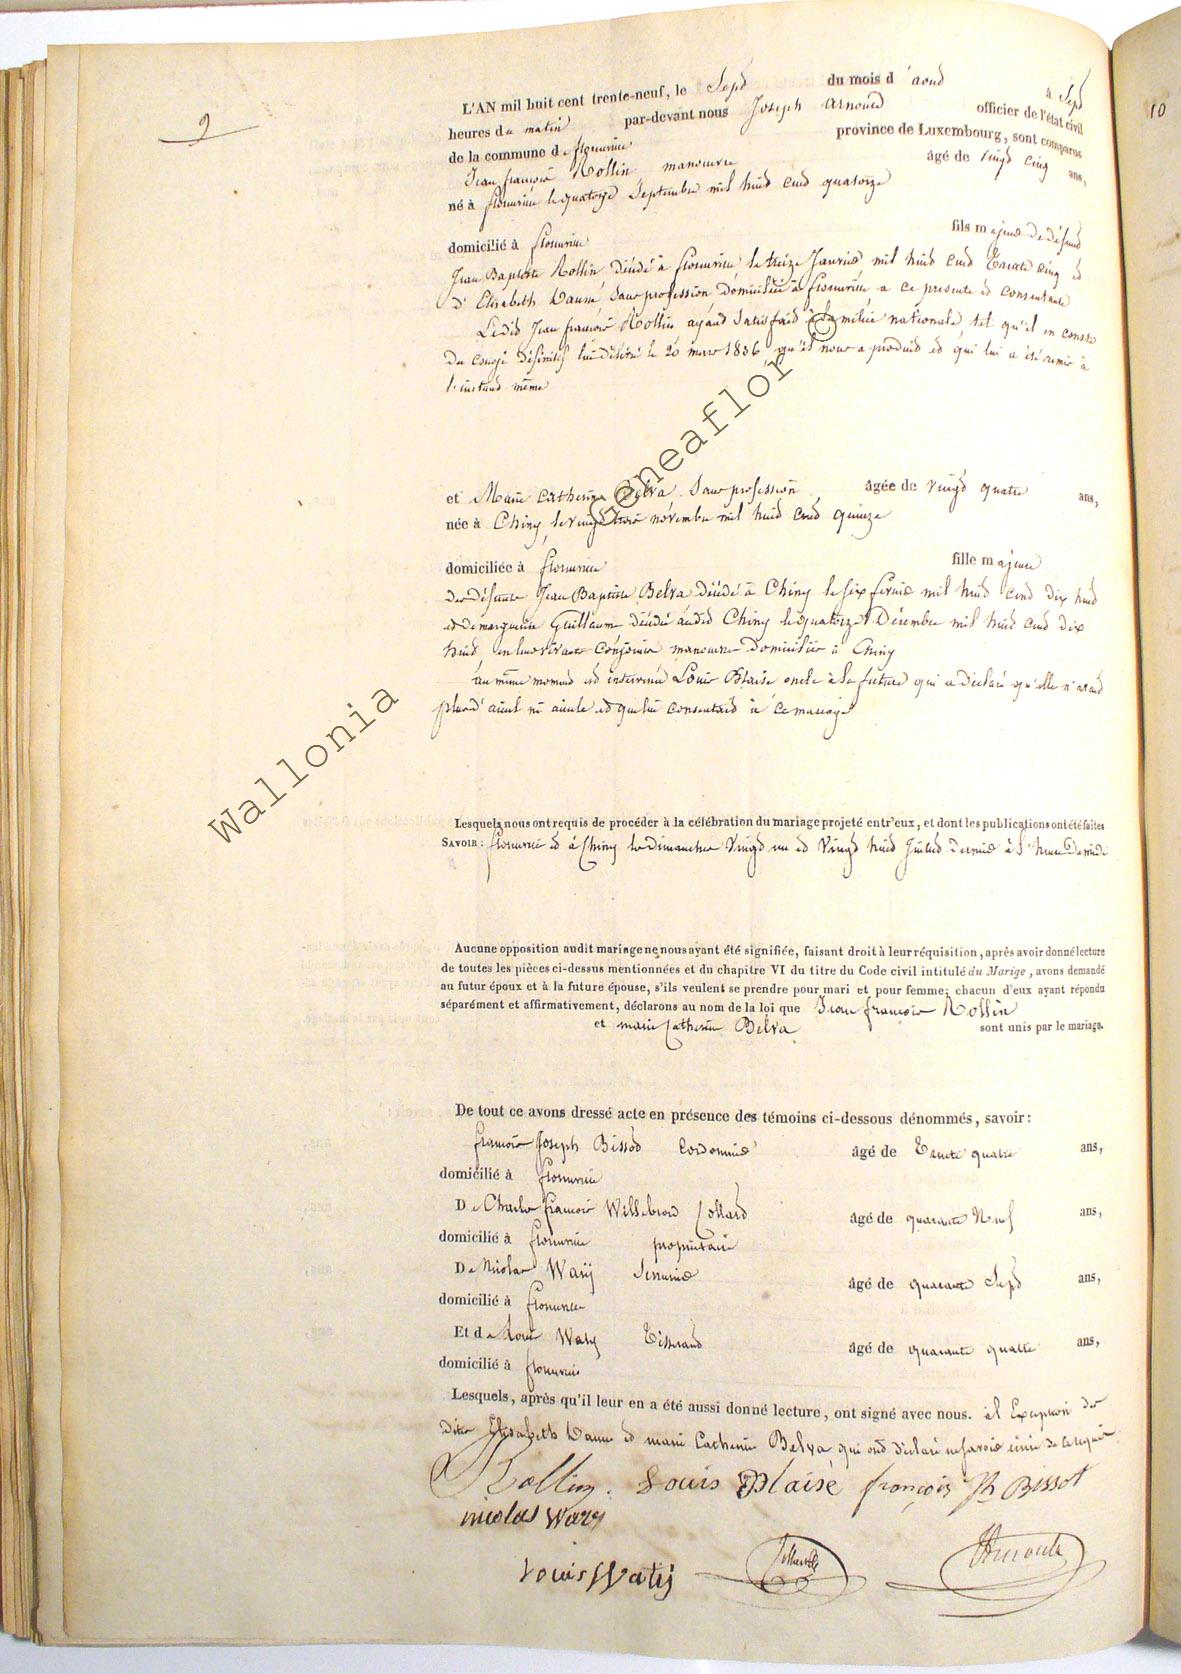 9
10
L'AN mil huit cent trente-neuf, le Sept du mois d'aout à Sept
heures du matin par-devant nous Joseph Arnould officier de l'état civil
de la commune de florenville province de Luxembourg, sont comparus
Jean françois Rollin manoeuvre âgé de vingt cinq ans,
né à le quatorze Septembre mil huit cent quatorze
domicilié à fils majeur de défunt
Jean Baptiste Rollin décédé à le treize Janvier mil huit cent trente cinq et
d'Elisabeth sans profession domiciliée à a ce presente et consentante
Ledit Jean françois Rollin ayant satisfait à la milice nationale, tel qu'il en conste
du congé définitif lui délivré le 20 mars 1836 qu'il nous a produit et qui lui a été remis à
l'instant même
et Marie catherine Belva, Sans profession, âgée de vingt quatre ans,
née à Chiny, le vingt novembre mil huit cent quinze
domiciliée à fille majeure
des défunts Jean Baptiste Belva décédé à Chiny le six fevrier mil huit cent dix huit
et de marguerite Guillaume décédée audit Chiny le quatorze Décembre mil huit cent dix
huit, en leur vivant conjoints manoeuvres domiciliés à Chiny
au même moment est intervenu Louis Blaise oncle à la future qui a déclaré qu'elle n'avait
plus d'aieul ni aieule et que lui consentait à ce mariage
Lesquels nous ont requis de procéder à la célébration du mariage projeté entr'eux, et dont les publications ont été faites
SAVOIR : et à Chiny les dimanches vingt un et vingt huit Juillet dernier à l'heure de midi
Aucune opposition audit mariage ne nous ayant été signifiée, faisant droit à leur réquisition, après avoir donné lecture
de toutes les pièces ci-dessus mentionnées et du chapitre VI du titre du Code civil intitulé du Marige, avons demandé
au futur époux et à la future épouse, s'ils veulent se prendre pour mari et pour femme; chacun d'eux ayant répondu
séparément et affirmativement, déclarons au nom de la loi que Jean françois Rollin
et marie Catherine Belva sont unis par le mariage.
De tout ce avons dressé acte en présence des témoins ci-dessous dénommés, savoir :
françois Joseph Bissot Cordonnier âgé de trente quatre ans,
domicilié à
De Charles françois Willebrord Collard âgé de quarante Neuf ans,
domicilié à propriétaire
De Nicolas Serrurier âgé de quarante Sept ans,
domicilié à
Et de Louis Tisserand âgé de quarante quatre ans,
domicilié à
Lesquels, après qu'il leur en a été aussi donné lecture, ont signé avec nous. à l'Exception des
dites Elisabeth et marie Catherine Belva qui ont déclaré ne savoir écrire de ce requis
Rollin. Louis Blaise françois Jh Bissot
nicolas Wary
Louis Arnould
Wallonia Geneaflor ©